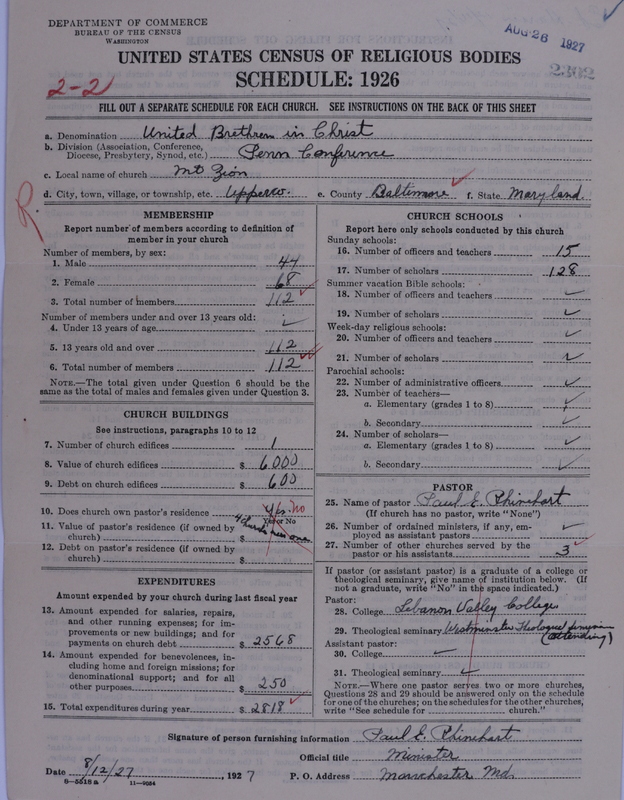 DEPARTMENT OF COMMERCE
BUREAU OF THE CENSUS
WASHINGTON
AUG 26 1927
2502
UNITED STATES CENSUS OF RELIGIOUS BODIES
SCHEDULE: 1926
2-2
FILL OUT A SEPARATE SCHEDULE FOR EACH CHURCH. SEE INSTRUCTIONS ON THE BACK OF THIS SHEET
a. Denomination United Brethren in Christ
b. Division (Association, Conference,
Diocese, Presbytery, Synod, etc.) Penn Conference
c. Local name of church Mt Zion
d. City, town, village, or township, etc. Upperco. e. County Baltimore f. State Maryland.
R
MEMBERSHIP
Report number of members according to definition of
member in your church
Number of members, by sex:
1. Male 44
2. Female 68
3. Total number of members 112
Number of members under and over 13 years old:
4. Under 13 years of age
5. 13 years old and over 112
6. Total number of members 112
NOTE.—The total given under Question 6 should be the
same as the total of males and females given under Question 3.
CHURCH BUILDINGS
See instructions, paragraphs 10 to 12
7. Number of church edifices 1
8. Value of church edifices $ 6000
9. Debt on church edifices $ 600
10. Does church own pastor's residence yes no
Yes or No
11. Value of pastor's residence (if owned by
church) $ 4 churches own one
12. Debt on pastor's residence (if owned by
church) $
EXPENDITURES
Amount expended by your church during last fiscal year
13. Amount expended for salaries, repairs,
and other running expenses; for im-
provements or new buildings; and for
payments on church debt $ 2568
14. Amount expended for benevolences, in-
cluding home and foreign missions; for
denominational support; and for all
other purposes $ 250
15. Total expenditures during year $ 2818
CHURCH SCHOOLS
Report here only schools conducted by this church
Sunday schools:
16. Number of officers and teachers 15
17. Number of scholars 128
Summer vacation Bible schools:
18. Number of officers and teachers
19. Number of scholars
Week-day religious schools:
20. Number of officers and teachers
21. Number of scholars
Parochial schools:
22. Number of administrative officers
23. Number of teachers—
a. Elementary (grades 1 to 8)
b. Secondary
24. Number of scholars—
a. Elementary (grades 1 to 8)
b. Secondary
PASTOR
25. Name of pastor Paul E. Rhinehart
(If church has no pastor, write "None")
26. Number of ordained ministers, if any, em-
ployed as assistant pastors
27. Number of other churches served by the
pastor or his assistants 3
If pastor (or assistant pastor) is a graduate of a college or
theological seminary, give name of institution below. (If
not a graduate, write "No" in the space indicated.)
Pastor:
28. College Lebanon Valley College
29. Theological seminary Westminster Theological Seminary
(attending)
Assistant pastor:
30. College
31. Theological seminary
NOTE.—Where one pastor serves two or more churches,
Questions 28 and 29 should be answered only on the schedule
for one of the churches; on the schedules for the other churches,
write "See schedule for church."
Signature of person furnishing information Paul E. Rhinehart
Official title Minister
Date 8/12/27, 1927 P. O. Address Manchester Md.
8-5518a 11-9054